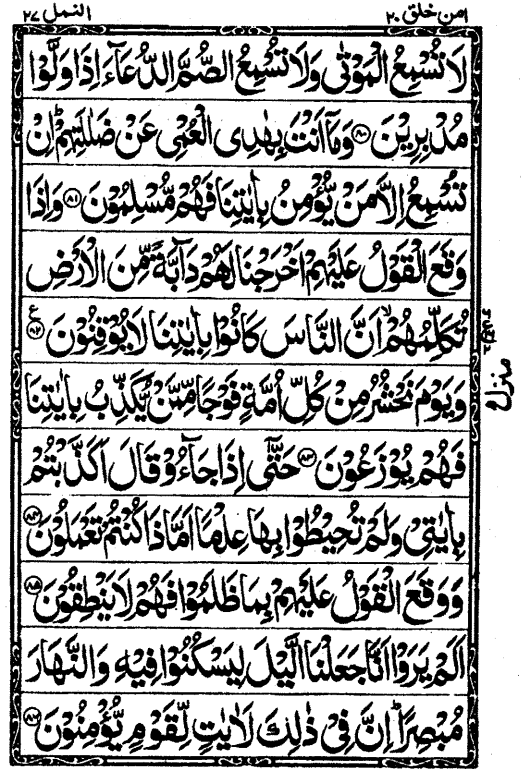 امن خلق ۲۰
النمل ۲۷
لَا تُسْمِعُ الْمَوْتٰى وَلَا تُسْمِعُ الصُّمَّ الدُّعَآءَ اِذَا وَلَّوْا
مُدْبِرِيْنَ ﴿۸۰﴾ وَمَآ اَنْتَ بِهٰدِى الْعُمْىِ عَنْ ضَلٰلَتِهِمْ ؕ اِنْ
تُسْمِعُ اِلَّا مَنْ يُّؤْمِنُ بِاٰيٰتِنَا فَهُمْ مُّسْلِمُوْنَ ﴿۸۱﴾ وَاِذَا
وَقَعَ الْقَوْلُ عَلَيْهِمْ اَخْرَجْنَا لَهُمْ دَآبَّةً مِّنَ الْاَرْضِ
تُكَلِّمُهُمْ ۙ اَنَّ النَّاسَ كَانُوْا بِاٰيٰتِنَا لَا يُوْقِنُوْنَ ﴿۸۲﴾ ع
وَيَوْمَ نَحْشُرُ مِنْ كُلِّ اُمَّةٍ فَوْجًا مِّمَّنْ يُّكَذِّبُ بِاٰيٰتِنَا
فَهُمْ يُوْزَعُوْنَ ﴿۸۳﴾ حَتّٰٓى اِذَا جَآءُوْ قَالَ اَكَذَّبْتُمْ
بِاٰيٰتِىْ وَلَمْ تُحِيْطُوْا بِهَا عِلْمًا اَمَّا ذَا كُنْتُمْ تَعْمَلُوْنَ ﴿۸۴﴾
وَوَقَعَ الْقَوْلُ عَلَيْهِمْ بِمَا ظَلَمُوْا فَهُمْ لَا يَنْطِقُوْنَ ﴿۸۵﴾
اَلَمْ يَرَوْا اَنَّا جَعَلْنَا الَّيْلَ لِيَسْكُنُوْا فِيْهِ وَالنَّهَارَ
مُبْصِرًا ؕ اِنَّ فِىْ ذٰلِكَ لَاٰيٰتٍ لِّقَوْمٍ يُّؤْمِنُوْنَ ﴿۸۶﴾
منزل ۵